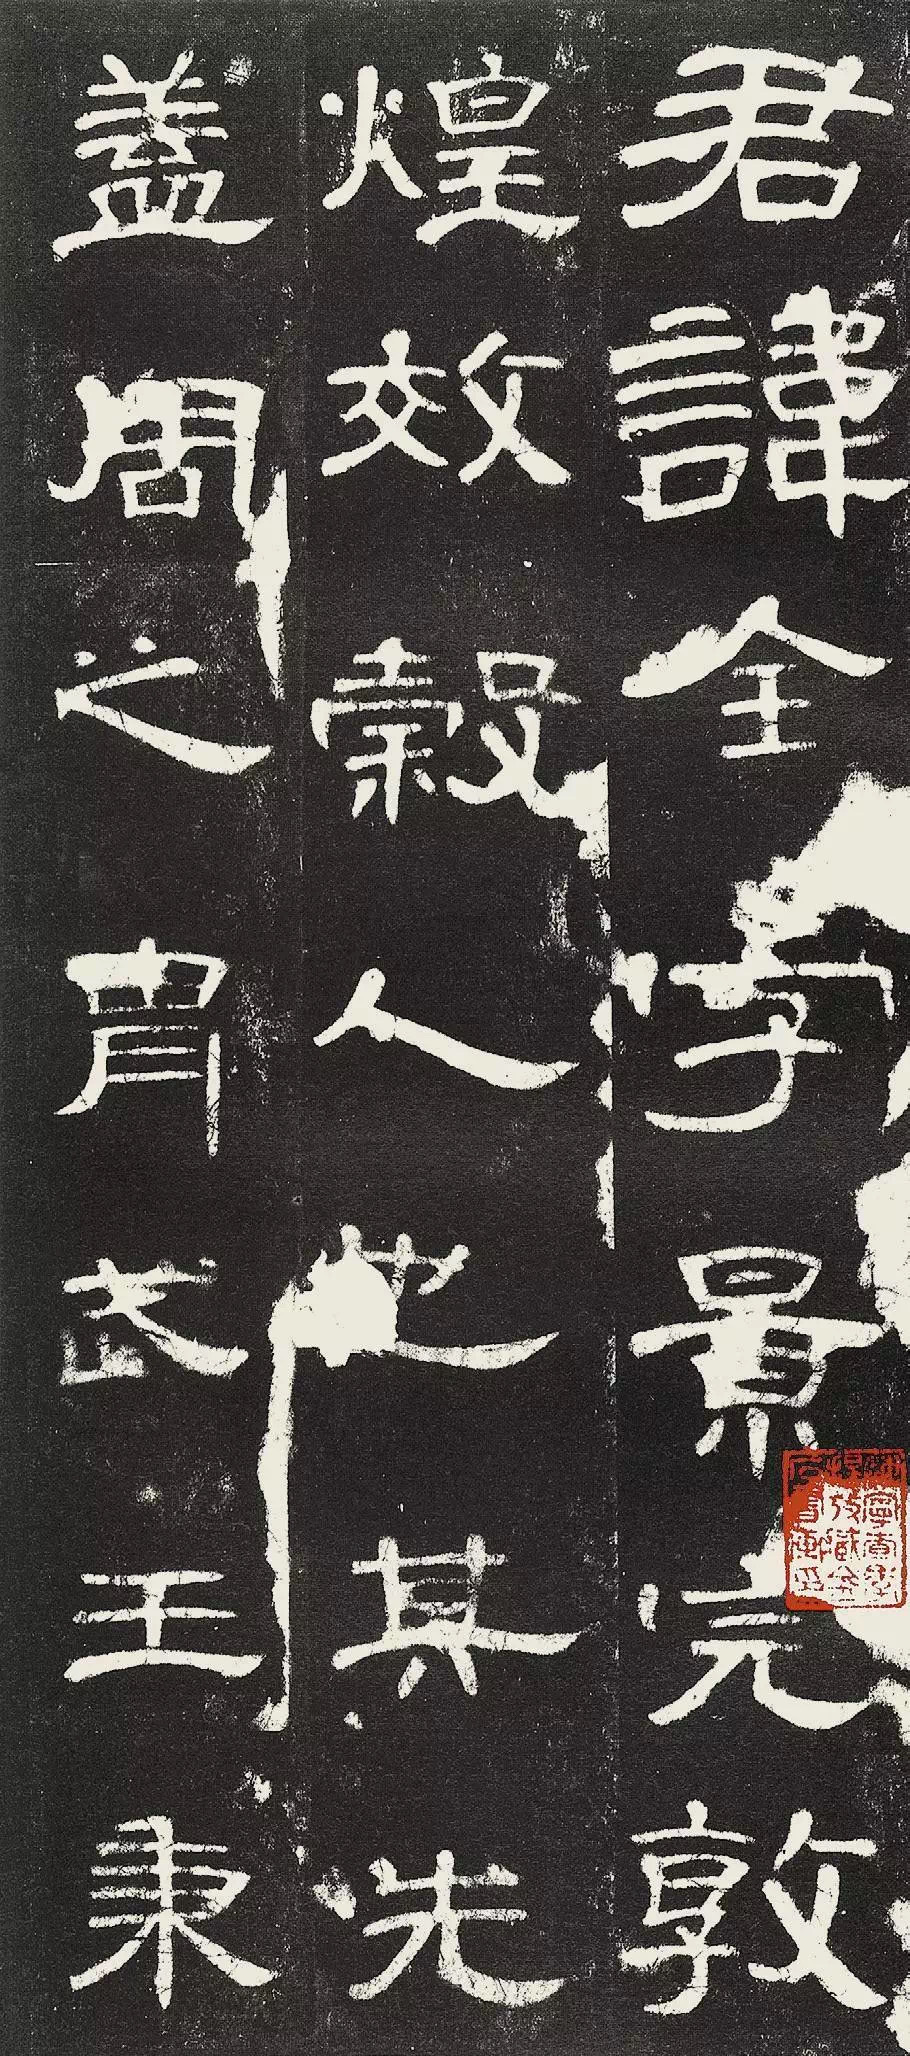 君諱全字景完敦
煌效穀人也其先
蓋周之胄武王秉